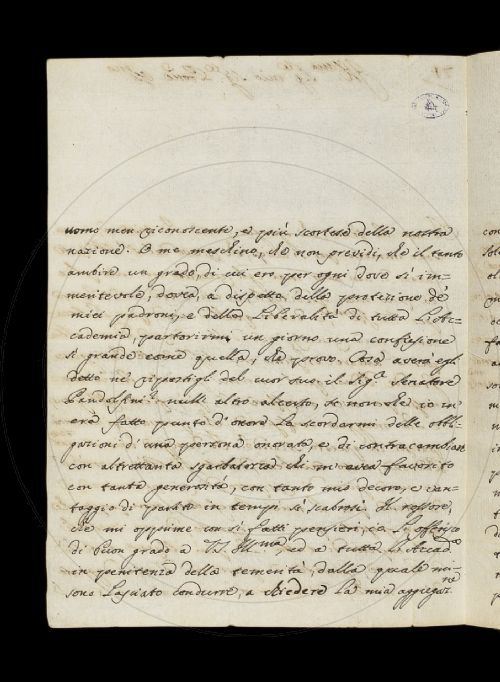 uomo men riconoscente, e più scortese della nostra
nazione. O me meschino, che non previdi, che il tanto
ambire un grado, di cui ero per ogni dove sì im-
meritevole, dovea, a dispetto della protezione de'
miei padroni, e della Liberalità di tutta l'Ac-
cademia, partorirmi un giorno una confusione
sì grande come quella, che provo. Cosa averà egli
detto ne' ripostigli del cuor suo il Sig.r Senatore
Pandolfini? null' altro al certo, se non che io m'
ero fatto punto d'onore la scordarmi delle obbli-
gazioni di una persona onorata, e di contracambiare
con altrettanta sgarbatezza chi m' avea favorito
con tanta generosità, con tanto mio decoro, e van-
taggio di partito in tempi sì scabrosi. Il rossore,
che mi opprime con sì fatti pensieri, io lo offerisco
di buon grado a V.S. Ill.ma, ed a tutta l'Accad.a
in penitenza della temerità, dalla quale mi
sono lasciato condurre, a chiedere la mia aggregaz.ne